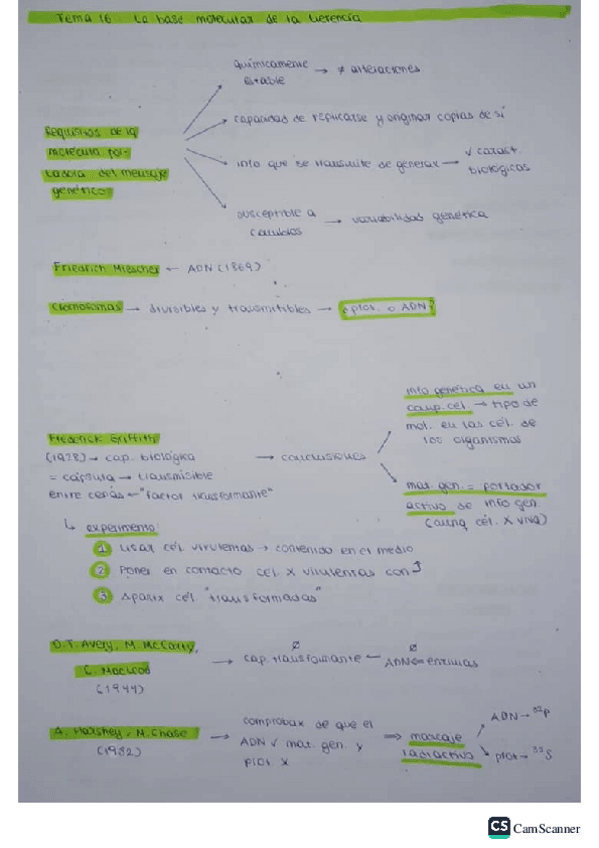 Tema 16 La base molecular de la herencia
químicamente → ≠ alteraciones
estable
capacidad de replicarse y originar copias de sí
Requisitos de la
molécula por-
tadora del mensaje
genético
info que se transmite de generar → √ caract.
biológicas
susceptible a → variabilidad genética
cambios
Friedrich Miescher ← ADN (1869)
Cromosomas → divisibles y transmitibles → ¿prot. o ADN?
Frederick Griffith
(1928) → cap. biológica → conclusiones
= cápsula → transmisible
entre cepas ← "factor transformante"
info genética en un
comp. cel. → tipo de
mol. en las cél. de
los organismos
mat. gen. = portador
activo de info gen.
(aunq cél. x viva)
↳ experimento:
1 Lisar cél virulentas → contenido en el medio
2 Poner en contacto cel. x virulentas con ↑
3 Aparix cél "transformadas"
O.T. Avery, M. McCarty,
C. MacLeod
(1944)
→ cap. transformante ← ADN enzimas
A. Harshey, M. Chase
(1952)
→ comprobar de que el
ADN √ mat. gen. y
prot. x
⇒ marcaje
radiactivo
ADN → ³²P
prot → ³⁵S
CS CamScanner